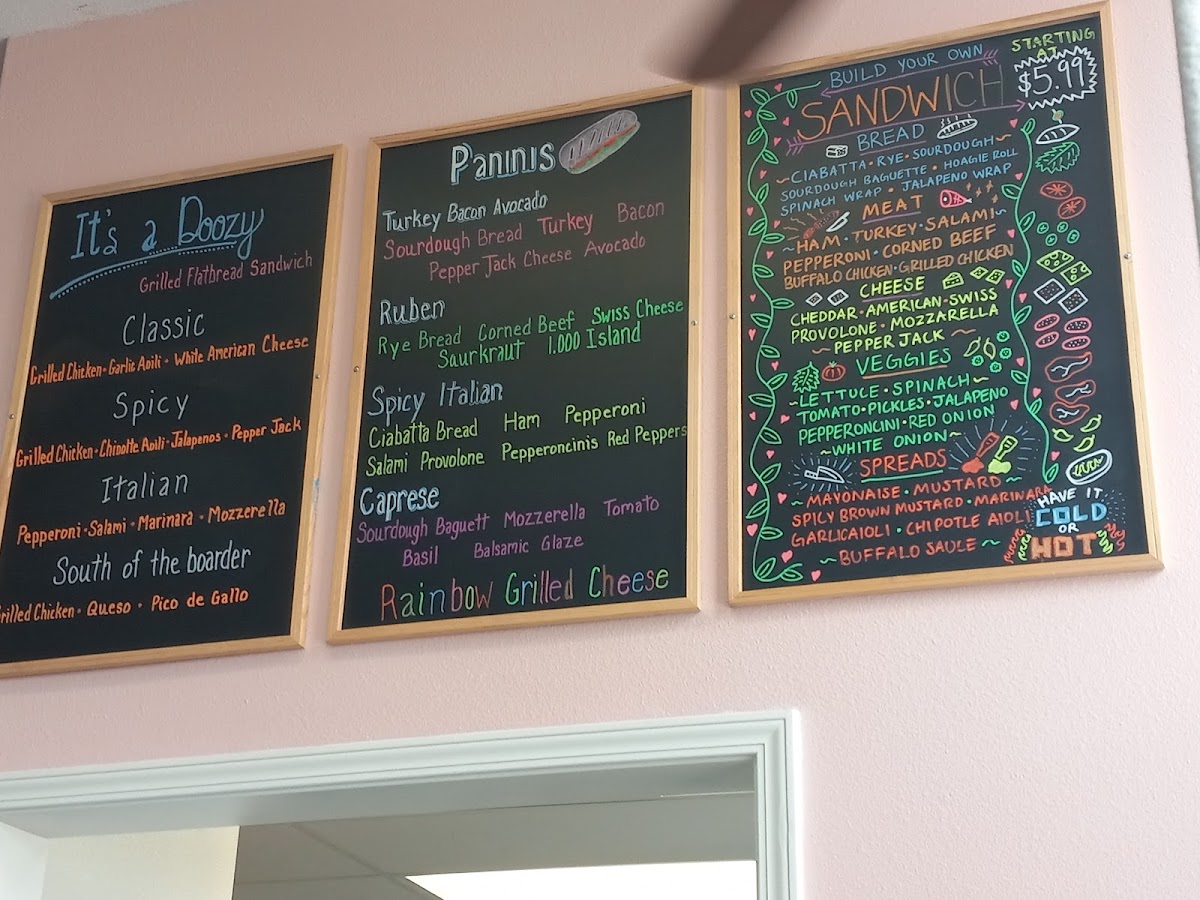 It's a Doozy
Grilled Flatbread Sandwich
Classic
Grilled Chicken • Garlic Aoili • White American Cheese
Spicy
Grilled Chicken • Chipotte Aoili • Jalapenos • Pepper Jack
Italian
Pepperoni • Salami • Marinara • Mozzerella
South of the boarder
Grilled Chicken • Queso • Pico de Gallo
Paninis
Turkey Bacon Avocado
Sourdough Bread Turkey Bacon
Pepper Jack Cheese Avocado
Ruben
Rye Bread Corned Beef Swiss Cheese
Saurkraut 1.000 Island
Spicy Italian
Ciabatta Bread Ham Pepperoni
Salami Provolone Pepperoncinis Red Peppers
Caprese
Sourdough Baguett Mozzerella Tomato
Basil Balsamic Glaze
Rainbow Grilled Cheese
BUILD YOUR OWN
SANDWICH
STARTING
AT
$5.99
BREAD
~CIABATTA • RYE • SOURDOUGH~
SOURDOUGH BAGUETTE • HOAGIE ROLL
SPINACH WRAP • JALAPENO WRAP
MEAT
~HAM • TURKEY • SALAMI~
PEPPERONI • CORNED BEEF
BUFFALO CHICKEN • GRILLED CHICKEN
CHEESE
CHEDDAR • AMERICAN • SWISS
PROVOLONE • MOZZARELLA
~ PEPPER JACK ~
VEGGIES
~LETTUCE • SPINACH~
TOMATO • PICKLES • JALAPENO
PEPPERONCINI • RED ONION
~WHITE ONION~
SPREADS
~MAYONAISE • MUSTARD~
SPICY BROWN MUSTARD • MARINARA
GARLICAIOLI • CHIPOTLE AIOLI
~BUFFALO SAUCE~
HAVE IT
COLD
OR
HOT